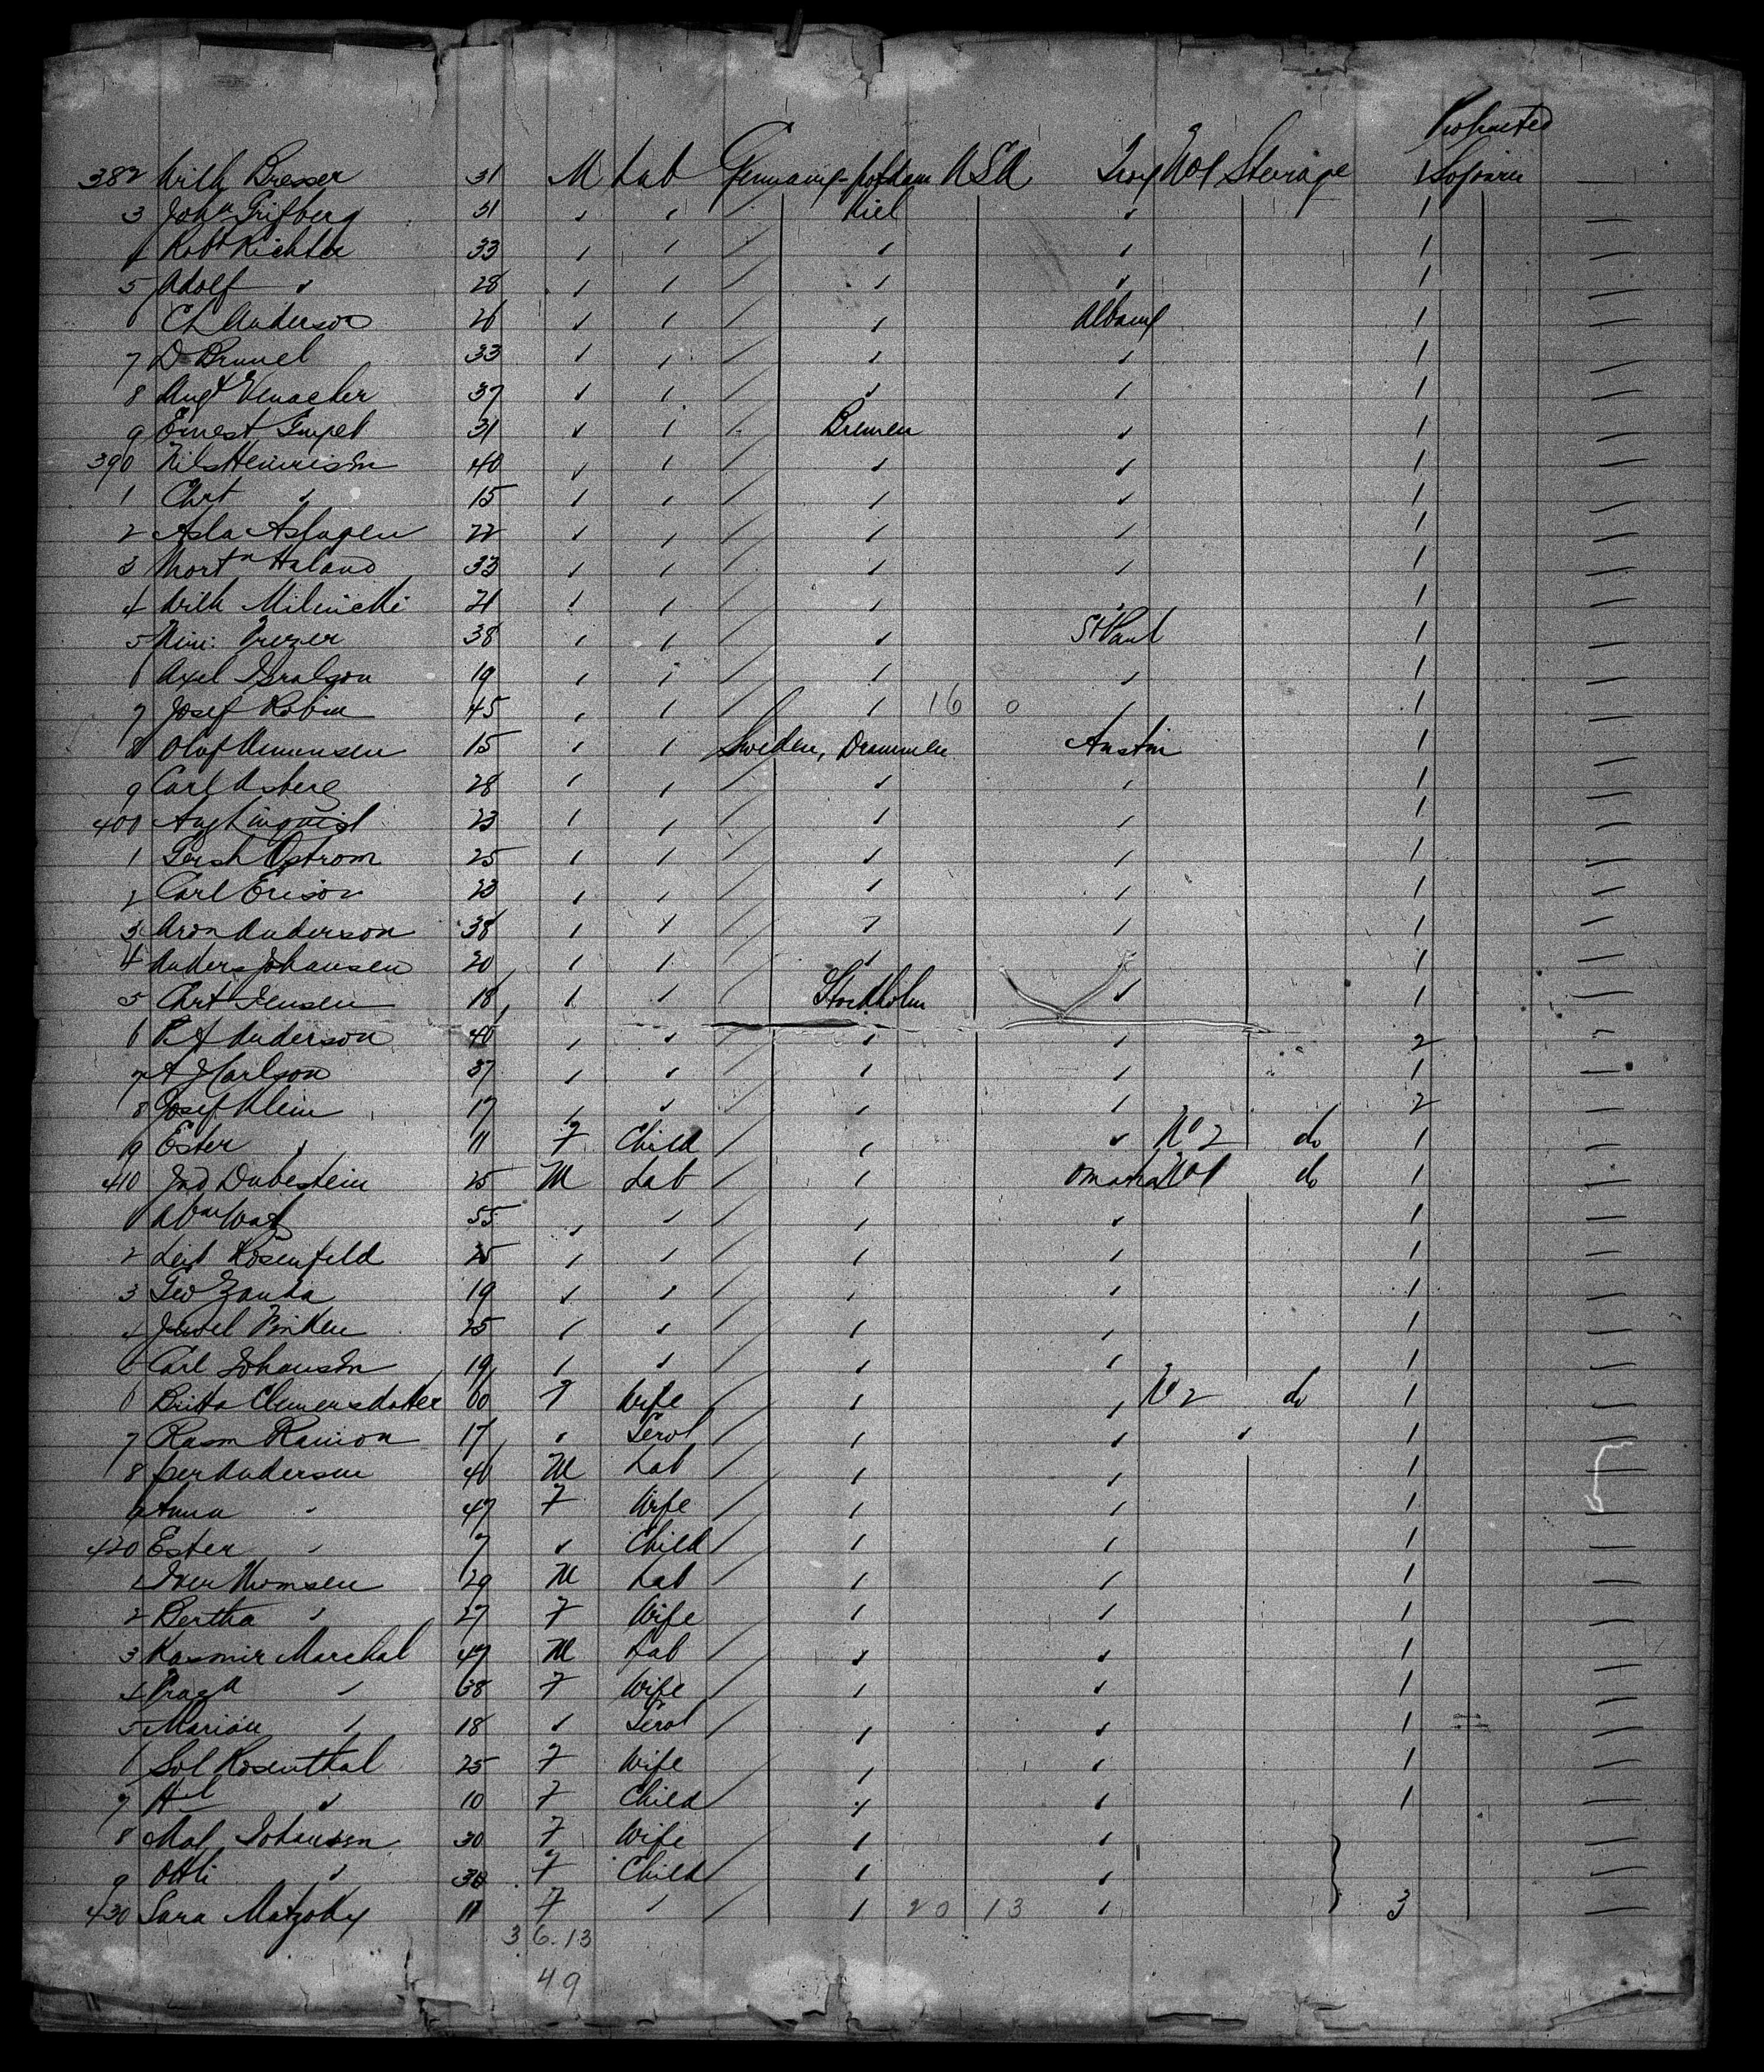 Protracted
382 Wilh Bresser 31 M Lab Germany- Potsdam USA Troy No 1 Steerage 1 Sojourn
3 Joha Grifberg 31 ✓ ✓ / Kiel ✓ 1
4 Robt Richter 33 ✓ ✓ / ✓ ✓ 1
5 Adolf ✓ 28 ✓ ✓ / ✓ ✓ 1
6 Ch Anderson 26 ✓ ✓ / ✓ Albany 1
7 D Brunel 33 ✓ ✓ / ✓ ✓ 1
8 Augt 37 ✓ ✓ / ✓ ✓ 1
9 Ernest Gumpel 31 ✓ ✓ / Bremen ✓ 1
390 Nils Henrison 40 ✓ ✓ / ✓ ✓ 1
1 Chrt ✓ 15 ✓ ✓ / ✓ ✓ 1
2 Asla Aslagen 22 ✓ ✓ / ✓ ✓ 1
3 Mortn Haland 33 ✓ ✓ / ✓ ✓ 1
4 Wilh Milinchi 21 ✓ ✓ / ✓ ✓ 1
5 38 ✓ ✓ / ✓ St Paul 1
6 Axel Isralson 19 ✓ ✓ / ✓ ✓ 1
7 Josef Robin 45 ✓ ✓ / ✓ 16 0 ✓ 1
8 Olaf Amunsen 15 ✓ ✓ Sweden, Drammen Austin 1
9 Carl Asberg 28 ✓ ✓ / ✓ ✓ 1
400 Aug Linquist 23 ✓ ✓ / ✓ ✓ 1
1 Gersh Ostrom 25 ✓ ✓ / ✓ ✓ 1
2 Carl Erison 23 ✓ ✓ / ✓ ✓ 1
3 Aron Anderson 38 ✓ ✓ / ✓ ✓ 1
4 Anders Johansen 20 ✓ ✓ / ✓ 1
5 Chrt Jensen 18 ✓ ✓ / Stockholm ✓ 1
6 P A Anderson 40 ✓ ✓ / ✓ ✓ 2
7 A J Carlson 37 ✓ ✓ / ✓ ✓ 1
8 Josef Klein 17 ✓ ✓ / ✓ ✓ 2
9 Ester ✓ 11 F Child / ✓ ✓ No 2 do 1
410 Jno Dubestein 25 M Lab / ✓ Omaha No 1 do 1
1 55 ✓ ✓ / ✓ ✓ 1
2 Leib Rosenfeld 25 ✓ ✓ / ✓ ✓ 1
3 Geo Zanda 19 ✓ ✓ / ✓ ✓ 1
4 Jewel Pinken 25 ✓ ✓ / ✓ ✓ 1
5 Carl Johanson 19 ✓ ✓ / ✓ ✓ 1
6 Britta Clemensdotter 60 F Wife / ✓ ✓ No 2 do 1
7 Rasm Ramion 17 ✓ Servt / ✓ ✓ ✓ 1
8 Per Andersen 46 M Lab / ✓ ✓ 1
9 Anna ✓ 47 F Wife / ✓ ✓ 1
420 Ester ✓ 7 ✓ Child / ✓ ✓ 1
1 Iver Thomsen 29 M Lab / ✓ ✓ 1
2 Bertha ✓ 27 F Wife / ✓ ✓ 1
3 Kasmir Marchal 47 M Lab / ✓ ✓ 1
4 Praxa ✓ 38 F Wife / ✓ ✓ 1
5 Marian ✓ 18 ✓ Servt / ✓ ✓ 1
6 Sol Rosenthal 25 F Wife / ✓ ✓ 1
7 ✓ 10 F Child / ✓ ✓ 1
8 Mal Johansen 30 F Wife / ✓ ✓
9 Otti ✓ F Child / ✓ ✓
430 Sara Matzoky 11 F ✓ / ✓ 20 13 ✓ 3
36.13
49